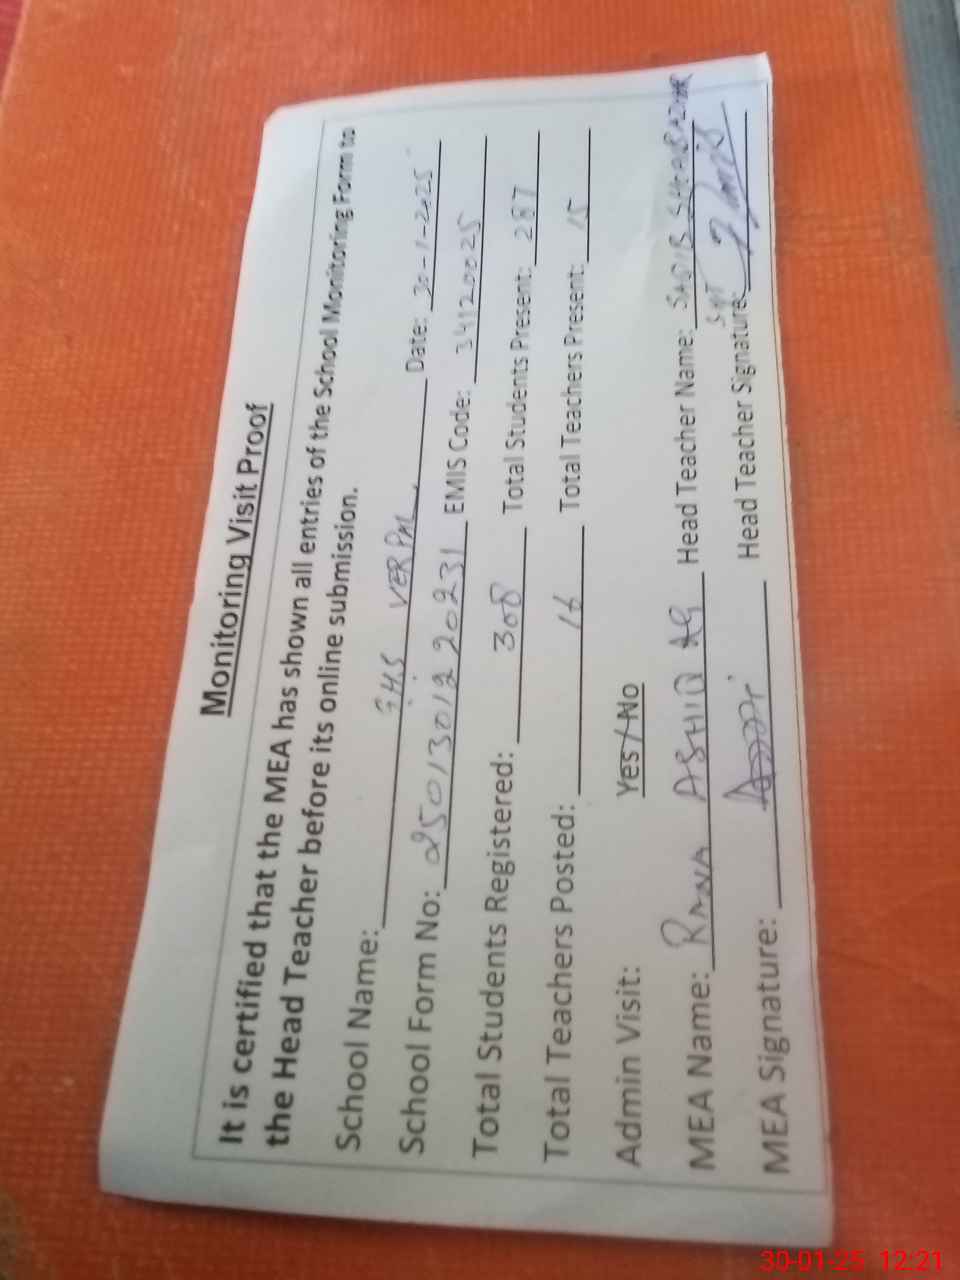 Monitoring Visit Proof
It is certified that the MEA has shown all entries of the School Monitoring Form to
the Head Teacher before its online submission.
School Name: GHS VERPAL Date: 30-1-2025
School Form No: 2501301220231 EMIS Code: 34120025
Total Students Registered: 308 Total Students Present: 287
Total Teachers Posted: 16 Total Teachers Present: 15
Admin Visit: Yes / No
MEA Name: RANA ASHIQ Ali Head Teacher Name: SAQIB SHAHBAZ
MEA Signature: Head Teacher Signature:
30-01-25 12:21